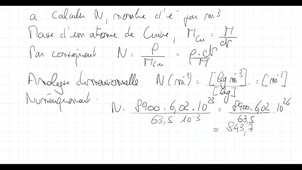 a Calculer N, nombre d'e⁻ par m³
Masse d'un atome de Cuivre, M_Cu = M / 𝒩
Par conséquent N = ρ / M_Cu = ρ · 𝒩 / M
Analyse dimensionnelle N (m⁻³) = [kg m⁻³] / [kg] = [m⁻³]
Numériquement : N = 8900 · 6,02 · 10²³ / 63,5 10⁻³ = 8900 · 6,02 · 10²⁶ / 63,5
= 843,7